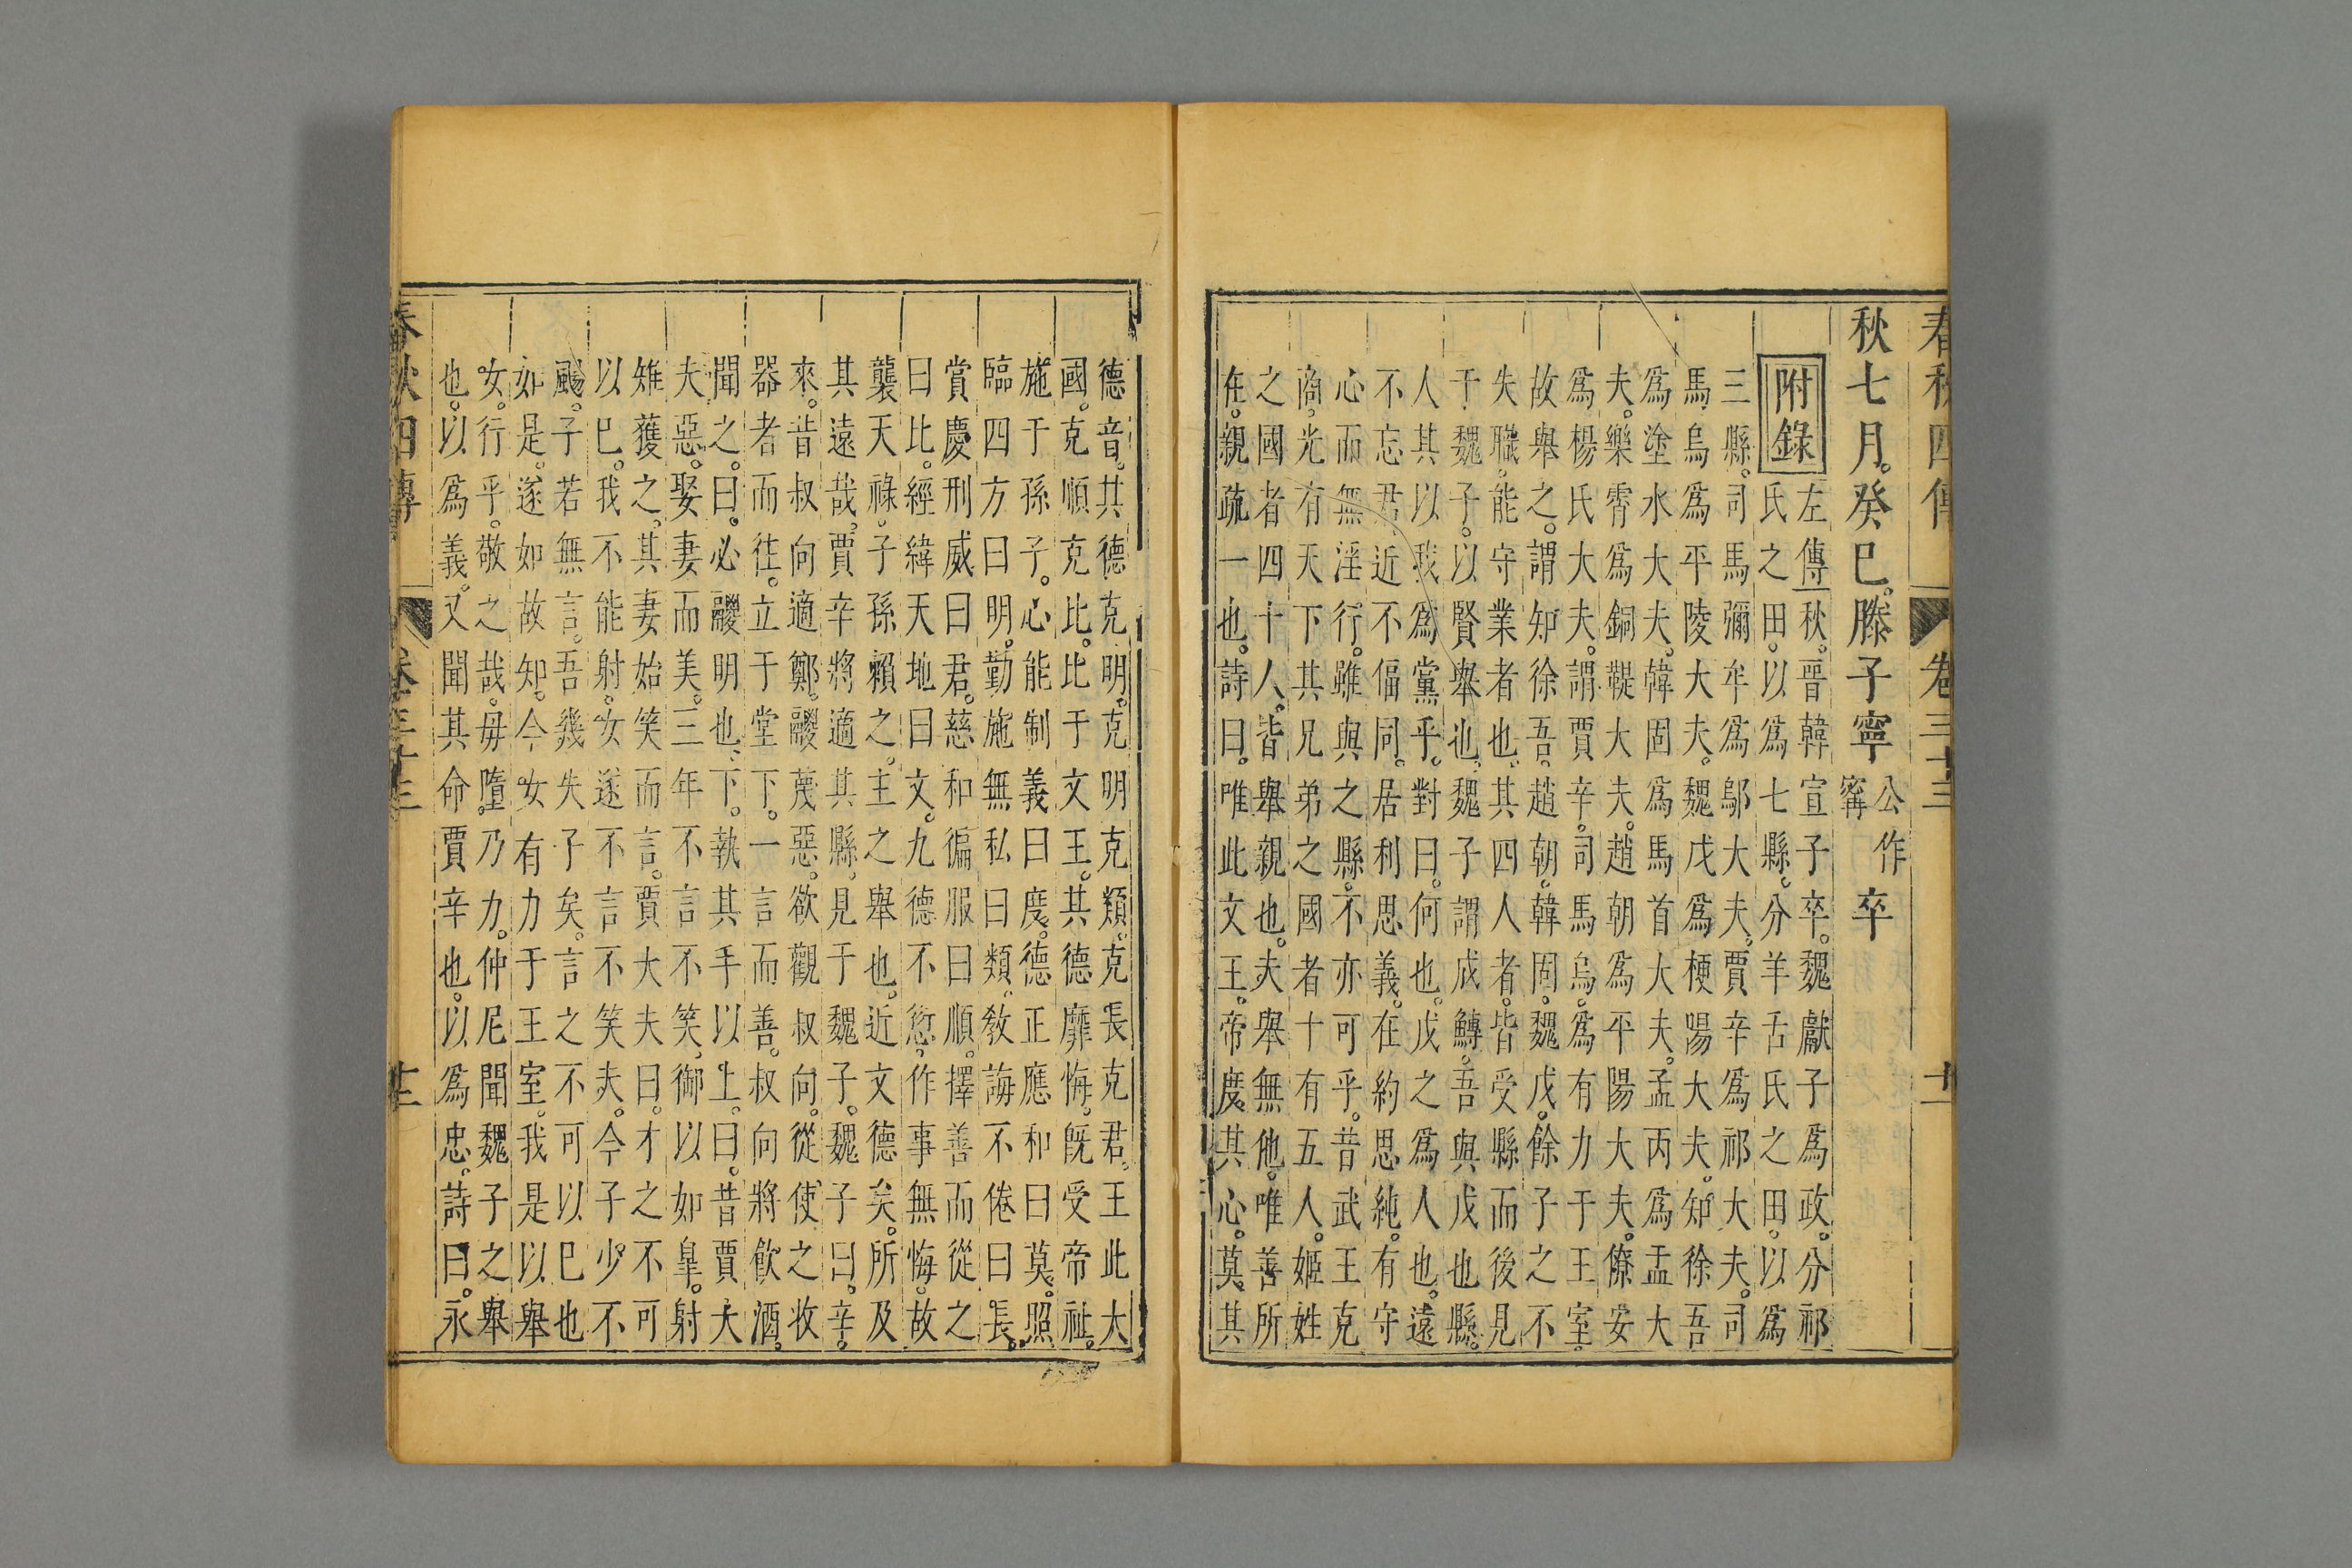 春秋四傳 卷三十三 十二
秋七月。癸巳。滕子寧公作甯卒
附錄 左傳秋。晉韓宣子卒。魏獻子爲政。分祁
氏之田。以爲七縣。分羊舌氏之田。以爲
三縣。司馬彌牟爲鄔大夫。賈辛爲祁大夫。司
馬烏爲平陵大夫。魏戊爲梗陽大夫。知徐吾
爲塗水大夫。韓固爲馬首大夫。孟丙爲盂大
夫。樂霄爲銅鞮大夫。趙朝爲平陽大夫。僚安
爲楊氏大夫。謂賈辛。司馬烏。爲有力于王室。
故舉之。謂知徐吾。趙朝。韓固。魏戊。餘子之不
失職。能守業者也。其四人者。皆受縣而後見
于魏子。以賢舉也。魏子謂成鱄。吾與戊也縣。
人其以我爲黨乎。對曰。何也。戊之爲人也。遠
不忘君。近不偪同。居利思義。在約思純。有守
心而無淫行。雖與之縣。不亦可乎。昔武王克
商。光有天下。其兄弟之國者十有五人。姬姓
之國者四十人。皆舉親也。夫舉無他。唯善所
在。親疏一也。詩曰。唯此文王。帝度其心。莫其
德音。其德克明。克明克類。克長克君。王此大
國。克順克比。比于文王。其德靡悔。旣受帝祉。
施于孫子。心能制義曰度。德正應和曰莫。照
臨四方曰明。勤施無私曰類。敎誨不倦曰長。
賞慶刑威曰君。慈和徧服曰順。擇善而從之
曰比。經緯天地曰文。九德不愆。作事無悔。故
襲天祿。子孫賴之。主之舉也。近文德矣。所及
其遠哉。賈辛將適其縣。見于魏子。魏子曰。辛。
來。昔叔向適鄭。鬷蔑惡。欲觀叔向。從使之收
器者而往。立于堂下。一言而善。叔向將飮酒。
聞之。曰。必鬷明也。下。執其手以上。曰。昔賈大
夫惡。娶妻而美。三年不言不笑。御以如皋。射
雉獲之。其妻始笑而言。賈大夫曰。才之不可
以已。我不能射。女遂不言不笑夫。今子少不
颺。子若無言。吾幾失子矣。言之不可以已也
如是。遂如故知。今女有力于王室。我是以舉
女。行乎。敬之哉。毋墮乃力。仲尼聞魏子之舉
也。以爲義。又聞其命賈辛也。以爲忠。詩曰。永
春秋四傳 卷三十三 十三